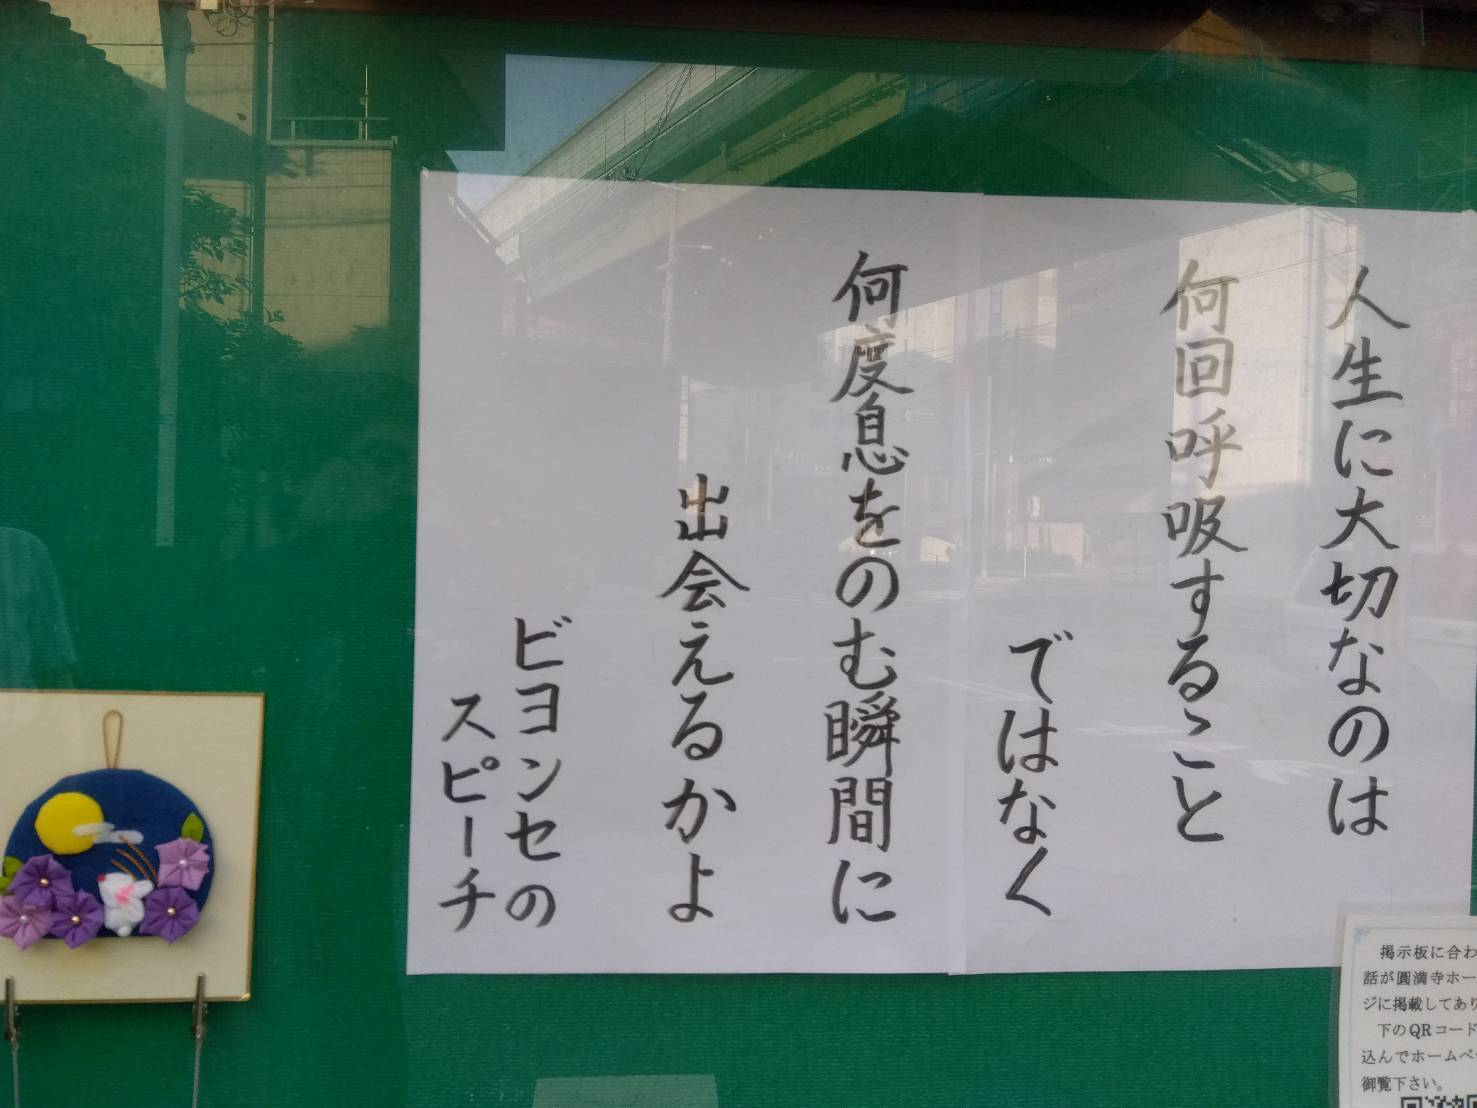 人生に大切なのは
何回呼吸すること
ではなく
何度息をのむ瞬間に
出会えるかよ
ビヨンセの
スピーチ
掲示板に合わ
話が圓満寺ホー
ジに掲載してあり
下のQRコード
込んでホームペー
御覧下さい。